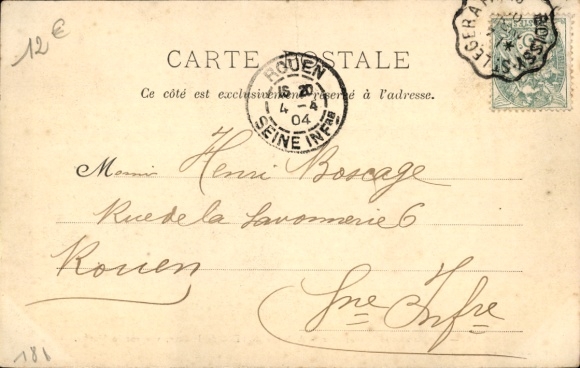 12€
BOISSY-ST-LEGER A
CARTE POSTALE
ROUEN
4 - 4
04
SEINE INFRE
Ce côté est exclusivement réservé à l'adresse.
Monsieur Henri Boscage
Rue de la Savonnerie 6
Rouen
Sne Infre